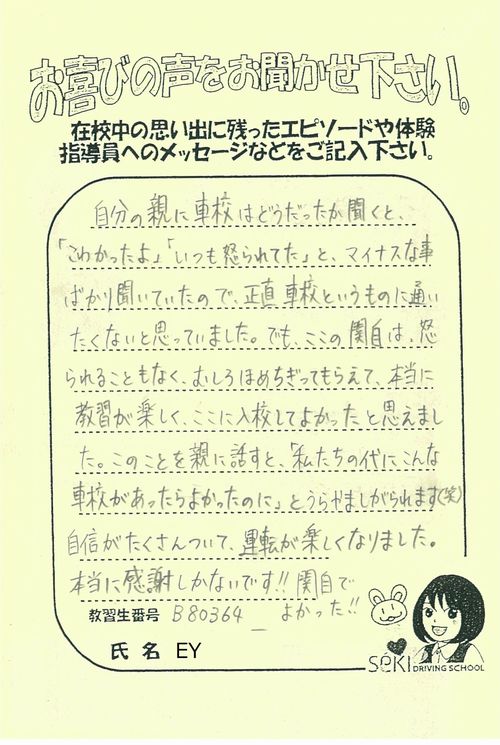 お喜びの声をお聞かせ下さい。
在校中の思い出に残ったエピソードや体験
指導員へのメッセージなどをご記入下さい。
自分の親に車校はどうだったか聞くと、
「こわかったよ」「いつも怒られてた」と、マイナスな事
ばかり聞いていたので、正直車校というものに通い
たくないと思っていました。でも、ここの関自は、怒
られることもなく、むしろほめちぎってもらえて、本当に
教習が楽しく、ここに入校してよかったと思えまし
た。このことを親に話すと、「私たちの代にこんな
車校があったらよかったのに」とうらやましがられます(笑)
自信がたくさんついて、運転が楽しくなりました。
本当に感謝しかないです!! 関自で
よかった!!
教習生番号 B80364
氏名 EY
SeKI DRIVING SCHOOL